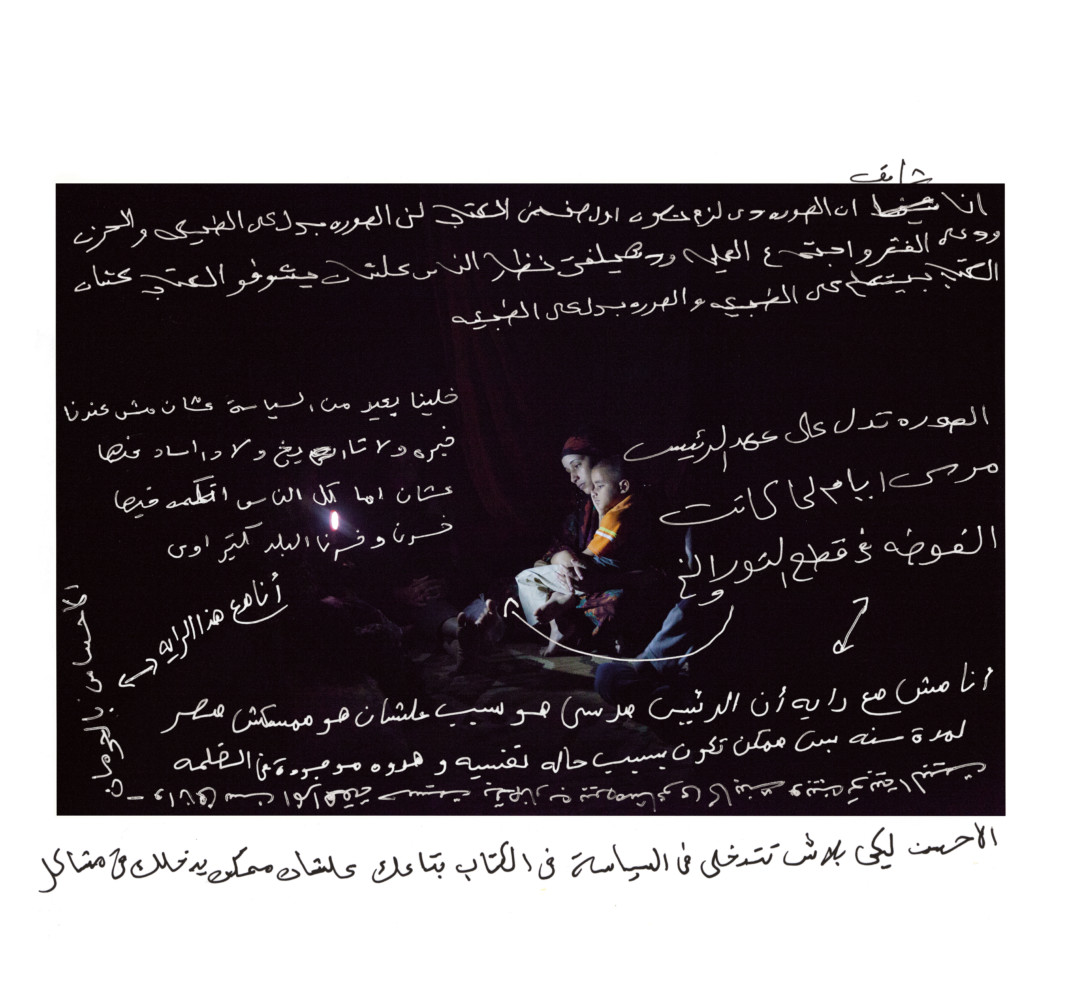 شايف
انا ان الصوره دى لازم تكون اول صفحه فى الكتاب لان الصوره بدل على الطبيعى والحزن
ودعى الفقر واجتماع العيله ودهيلفت نظر الناس علشان يشوفو الكتاب عشان
الكتاب بيتكلم على الطبيعه والصوره بدل على الطبيعه
خلينا بعيد من السياسة عشان مش عندنا
خبره ولا تاريخ ولا دراسات عنها
عشان اما كل الناس اتكلمه فيها
خسرنا وخسرنا البلد كتير اوى
الصوره تدل على عهد الرئيس
مرسى ايام لما كانت
الفوضه فى قطع النور والخ
أنا مع هذا الرايه
الاحساس بالحرمان
أنا مش مع رايه أن الرئيس مرسى هو سبب علشان هو ممسكش مصر
لمدة سنه بس ممكن تكون بسبب حاله نفسيه و موجودة فى الظلمه
الاحسن ليكى بلاش تتدخلى فى السياسة فى الكتاب بتاعك علشان ممكن يدخلك فى مشاكل